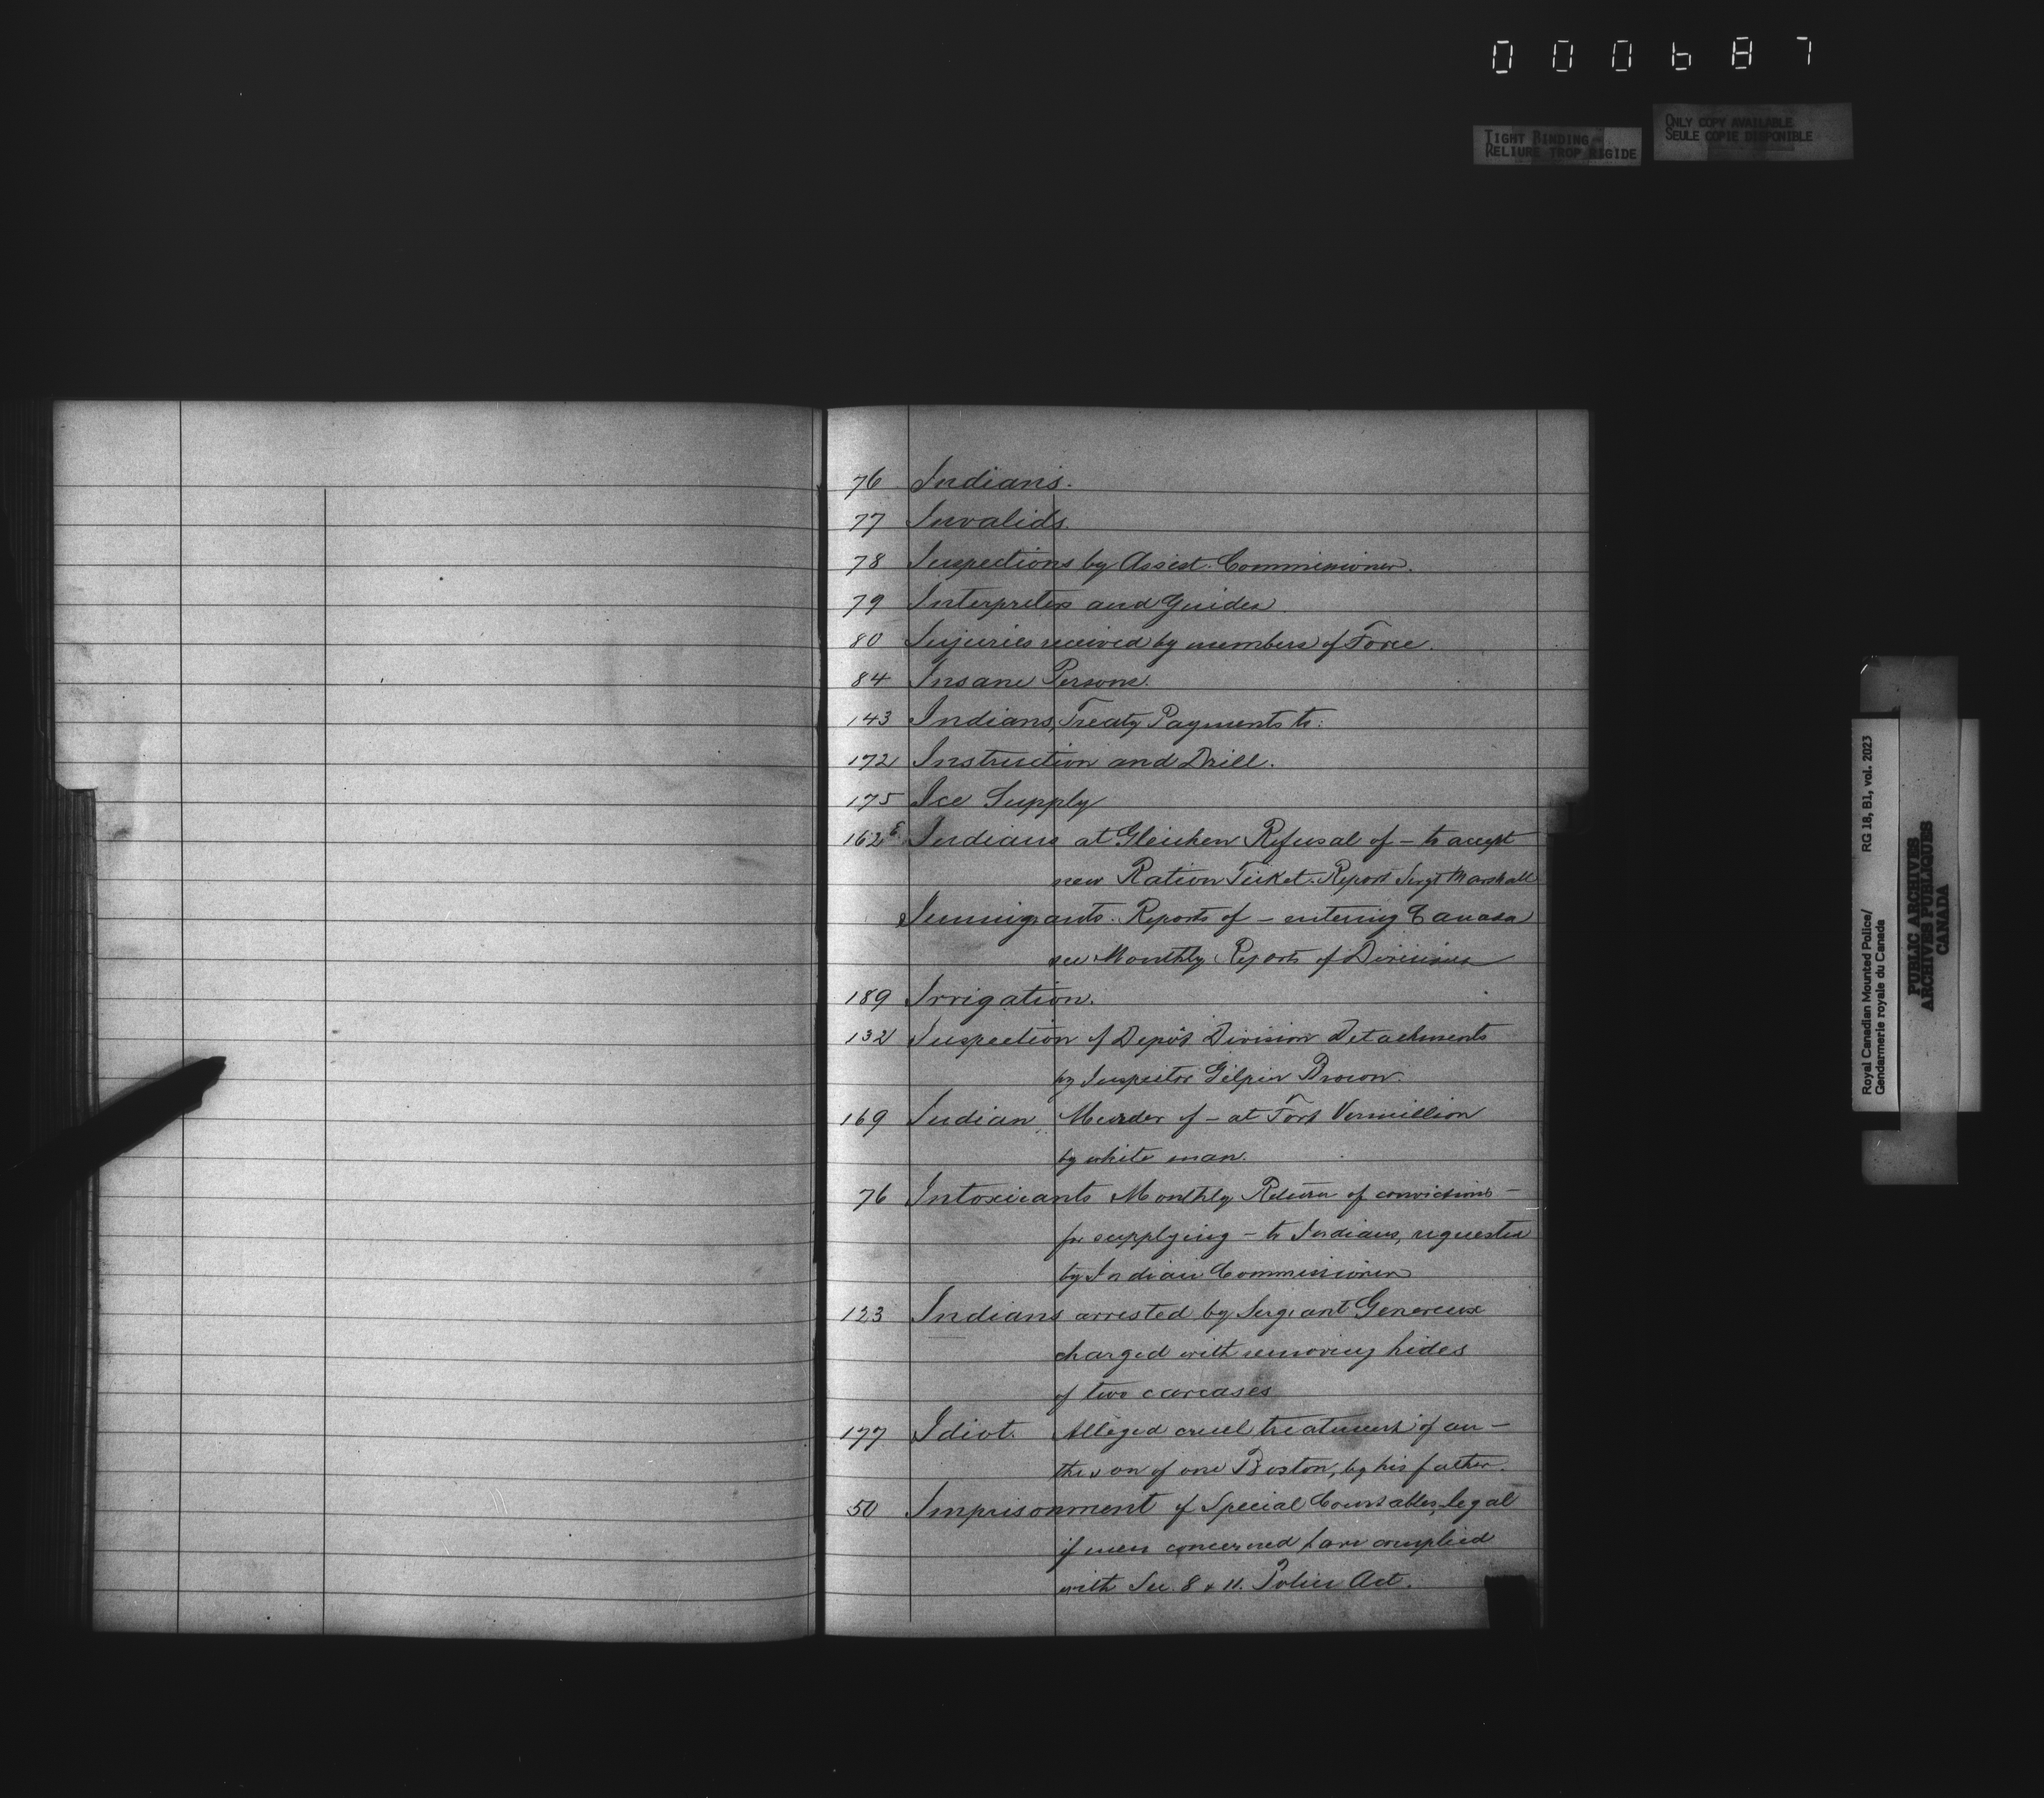 000687
TIGHT BINDING
RELIURE TROP RIGIDE
ONLY COPY AVAILABLE
SEULE COPIE DISPONIBLE
76 Indians.
77 Invalids.
78 Inspections by Assist. Commissioner.
79 Interpreters and Guides
80 Injuries received by members of Force.
84 Insane Persons.
143 Indians, Treaty Payments to:
172 Instruction and Drill.
175 Ice Supply
162 Indians at Gleichen Refusal of – to accept
new Ration Ticket. Report Sergt Marshall
Immigrants. Reports of – entering Canada
see Monthly Reports of Divisions
189 Irrigation.
132 Inspection of Depôt Division Detachments
by Inspector Gilpin Brown.
169 Indian, Murder of – at Fort Vermillion
by white man.
76 Intoxicants Monthly Return of convictions –
for supplying – to Indians, requested
by Indian Commissioner
123 Indians arrested by Sergeant Genereux
charged with removing hides
of two carcases
177 Idiot. Alleged cruel treatment of an –
the son of one Boston, by his father.
50 Imprisonment of Special Constables, legal
if men concerned have complied
with Sec. 8 & 11. Police Act.
Royal Canadian Mounted Police/
Gendarmerie royale du Canada
RG 18, B1, vol. 2023
PUBLIC ARCHIVES
ARCHIVES PUBLIQUES
CANADA